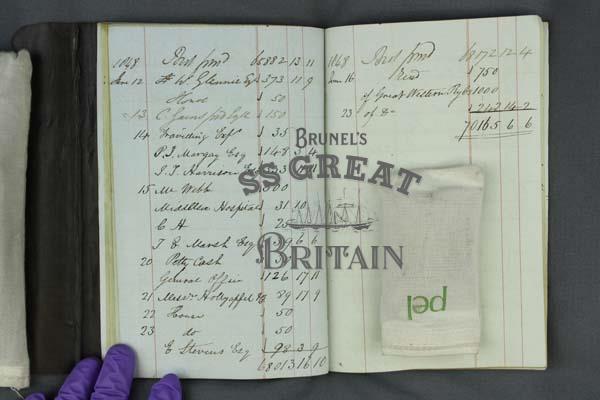 1848 Bot fwd 65882 13 11
Jan 12 W. Glennie Esq 373 11 9
House 50
13 150
14 Travelling Exps 35
P.J. Margary Esq 148 3 4
S. J. Harrison
15 Mr Webb
Middlesex Hospital 31 10
C H
T. E. Marsh Esq 6 6
20 Petty Cash
General Office 126 17 11
21 Messrs Holtzapffel 89 17 9
22 House 50
23 do 50
E Stevens Esq 98 3 9
68013 16 10
1848 Bot fwd 68172 12 4
Jan 16 Recd 750
of Great Western Ry 1000
23 of do 242 14 2
70165 6 6
BRUNEL'S
SS GREAT
BRITAIN
pel